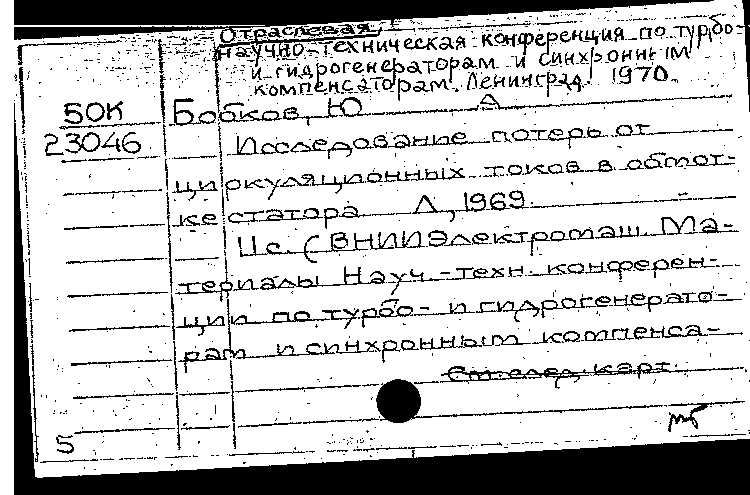 Отраслевая
научно-техническая конференция по турбо-
и гидрогенераторам и синхронным
компенсаторам. Ленинград. 1970.
БОК Бобков, Ю А
23046 Исследование потерь от
циркуляционных токов в обмот-
ке статора Л, 1969.
11с. (ВНИИЭлектромаш. Ма-
териалы Науч.-техн. конферен-
ции по турбо- и гидрогенерато-
рам и синхронным компенса-
См. след. карт.
5